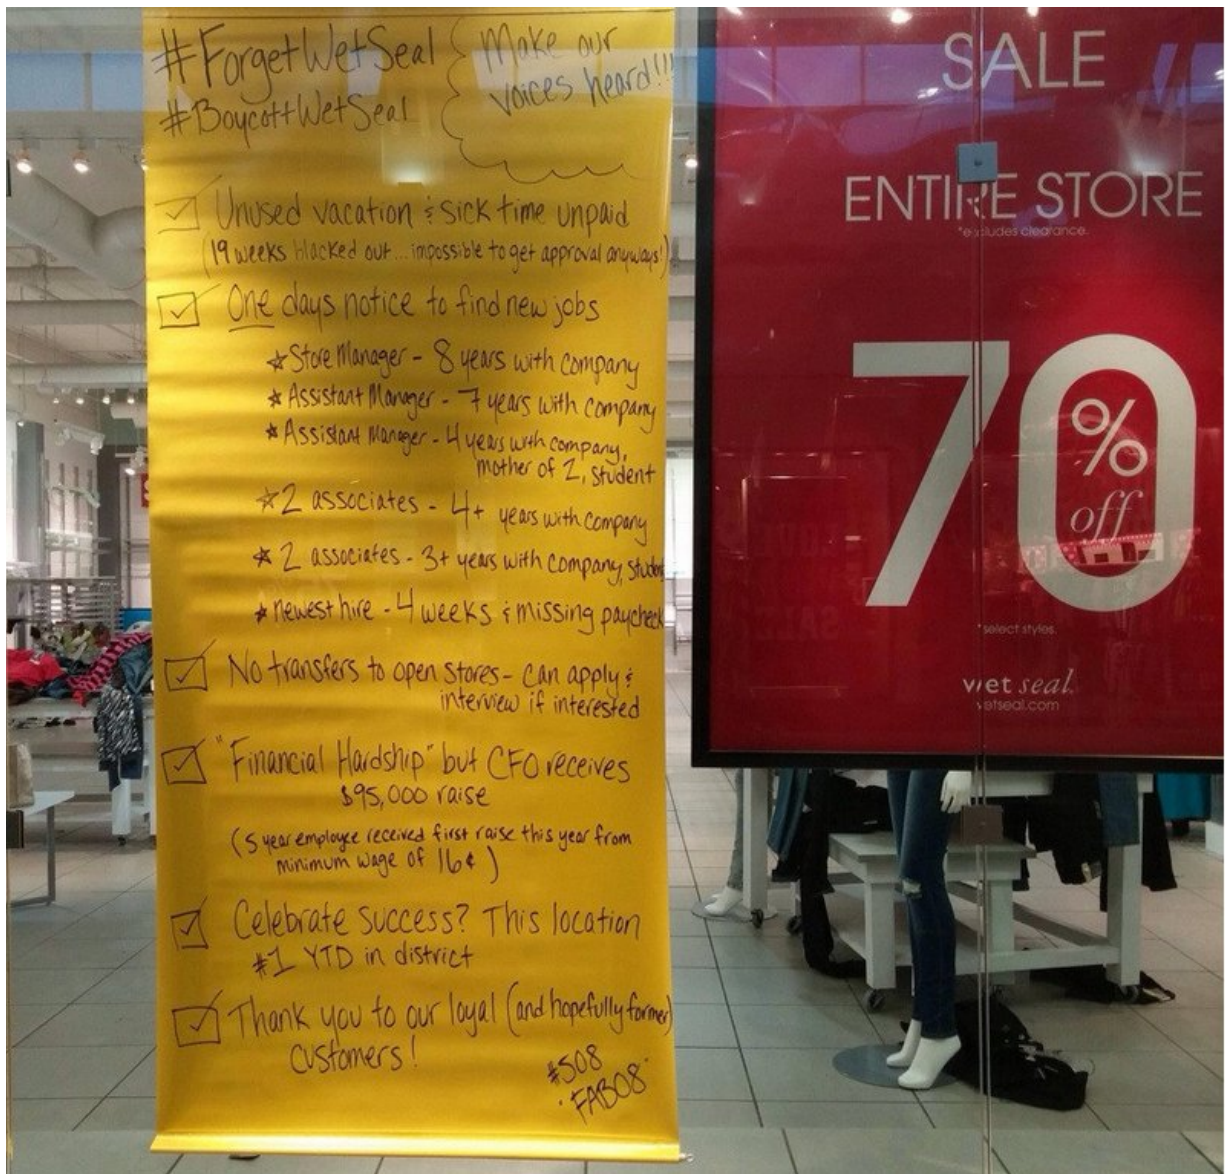 #ForgetWetSeal
#BoycottWetSeal
Make our
voices heard!!!
Unused vacation & sick time unpaid
(19 weeks blacked out... impossible to get approval anyways!)
One days notice to find new jobs
Store Manager - 8 years with company
Assistant Manager - 7 years with company
Assistant Manager - 4 years with company,
mother of 2, student
2 associates - 4+ years with company
2 associates - 3+ years with company, student
newest hire - 4 weeks & missing paycheck
No transfers to open stores - can apply &
interview if interested
"Financial Hardship" but CFO receives
$95,000 raise
(5 year employee received first raise this year from
minimum wage of 16¢)
Celebrate success? This location
#1 YTD in district
Thank you to our loyal (and hopefully former)
customers!
#508
"FAB08"
SALE
ENTIRE STORE
*excludes clearance.
70
%
off
*select styles.
wet seal.
wetseal.com